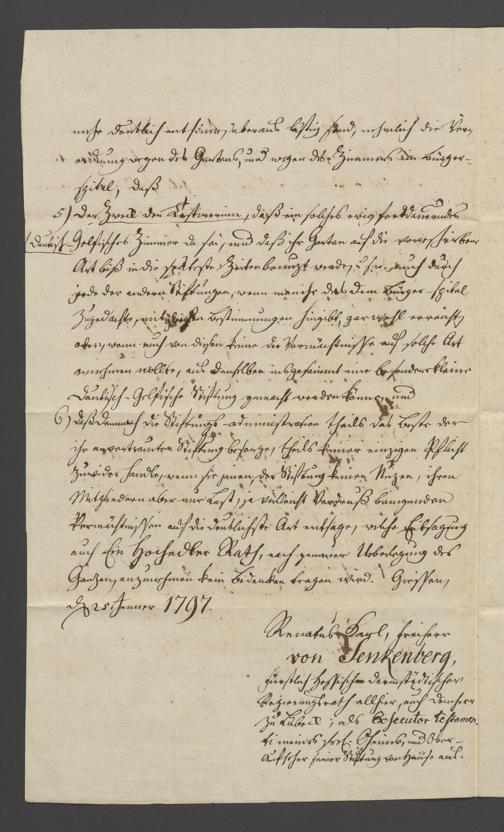 mehr deutlich entsinne, überaus lästig sind, nehmlich die Ver-
ordnung wegen des Gartens, und wegen des Zimmers im Bürger-
spital, daß
5) Der Zweck der Testirerinn, daß ein solches ewig fortdaurendes
Zimmer da sei, und daß ihr Garten auf die vorgeschriebene
Art biß in die späteste Zeiten benuzt werde, auch durch
jede der andern Stiftungen, wenn man ihr das dem Bürger-spital
Zugedachte, mit Bestimmungen hingibt, gar wohl erreicht
oder, wenn auch von diesen keine die Vermächtnisse auf solche Art
annehmen wollte, aus denselben insgesammt eine besondere kleine
Stiftung gemacht werden könne, und
6) daß demnach die Stiftungs-administration theils das Beste der
ihr anvertrauten Stiftung besorge, theils keiner einzigen Pflicht
zuwider handle, wenn sie jenen, der Stiftung keinen Nuzen, ihren
Mitgliedern aber nur Last, ja vielleicht Verdruß bringenden
Vermächtnissen auf die deutlichste Art entsage, welche Entsagung
auch Ein Hochedler Rath, nach genauer Überlegung des
Ganzen, anzunehmen kein Bedenken tragen wird. Giessen,
d. 25 Jenner 1797.
Renatus Karl, Freiherr
von Senkenberg,
Fürstlich Hessischer darmstädtischer
Regierungsrath allhier, auch Domherr
zu Lübeck; als Executor testamen-
ti meines seel. Oheims, und Ober-
Aufseher seiner Stiftung von Hause aus.